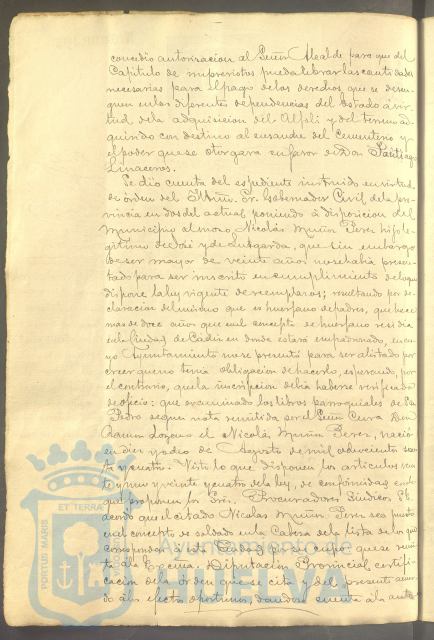 concedio autorizacion al Señor Alcalde para que del
Capitulo de imprevistos pueda librar las cantidades
necesarias para el pago de los derechos que se deven-
guen en las diferentes dependencias del Estado á vir-
tud de la adquisicion del Alfolí y del terreno ad-
quirido con destino al ensanche del Cementerio y
el poder que se otorgara en favor de Don Santiago
Linaceros.
Se dió cuenta del espediente instruido en virtud
de orden del Iltmo. Sr. Gobernador Civil de la pro-
vincia en dos del actual poniendo á disposicion del
Municipio al mozo Nicolás Muñoz Perez hijo le-
gitimo de José y de Lutgarda, que sin embargo
de ser mayor de veinte años no se habia presen-
tado para ser inscrito en cumplimiento de lo que
dispone la ley vigente de reemplazos; resultando por de-
claracion del mismo que es huerfano de padres, que hace
mas de doce años que en el concepto de huerfano residia
en la Ciudad de Cadiz en donde estará empadronado, en cu-
yo Ayuntamiento no se presentó para ser alistado por
creer que no tenia obligacion de hacerlo, esperando, por
el contrario, que la inscripcion debia haberse verificado
de oficio: que examinado los libros parroquiales de San
Pedro segun nota remitida por el Señor Cura Don
Ramon Lozano el Nicolás Muñoz Perez, nació
en diez y ocho de Agosto de mil ochocientos sesen-
ta y cuatro. Visto lo que disponen los articulos
y veinte y cuatro de la ley, de conformidad con lo
que proponen los Sres. Procuradores Sindicos
que el citado Nicolas Muñoz Perez sea puesto
en el concepto de soldado en la Cabeza de la lista de los que
correspondan á esta Ciudad, á cuyo fin que se remi-
ta á la Excma. Diputacion Provincial certifi-
cacion de la orden que se cita y del presente acuer-
do á los efectos oportunos, dandose cuenta á la auto-
PORTUS MARIS
ET TERRAE
Ayuntamiento de
HUELVA